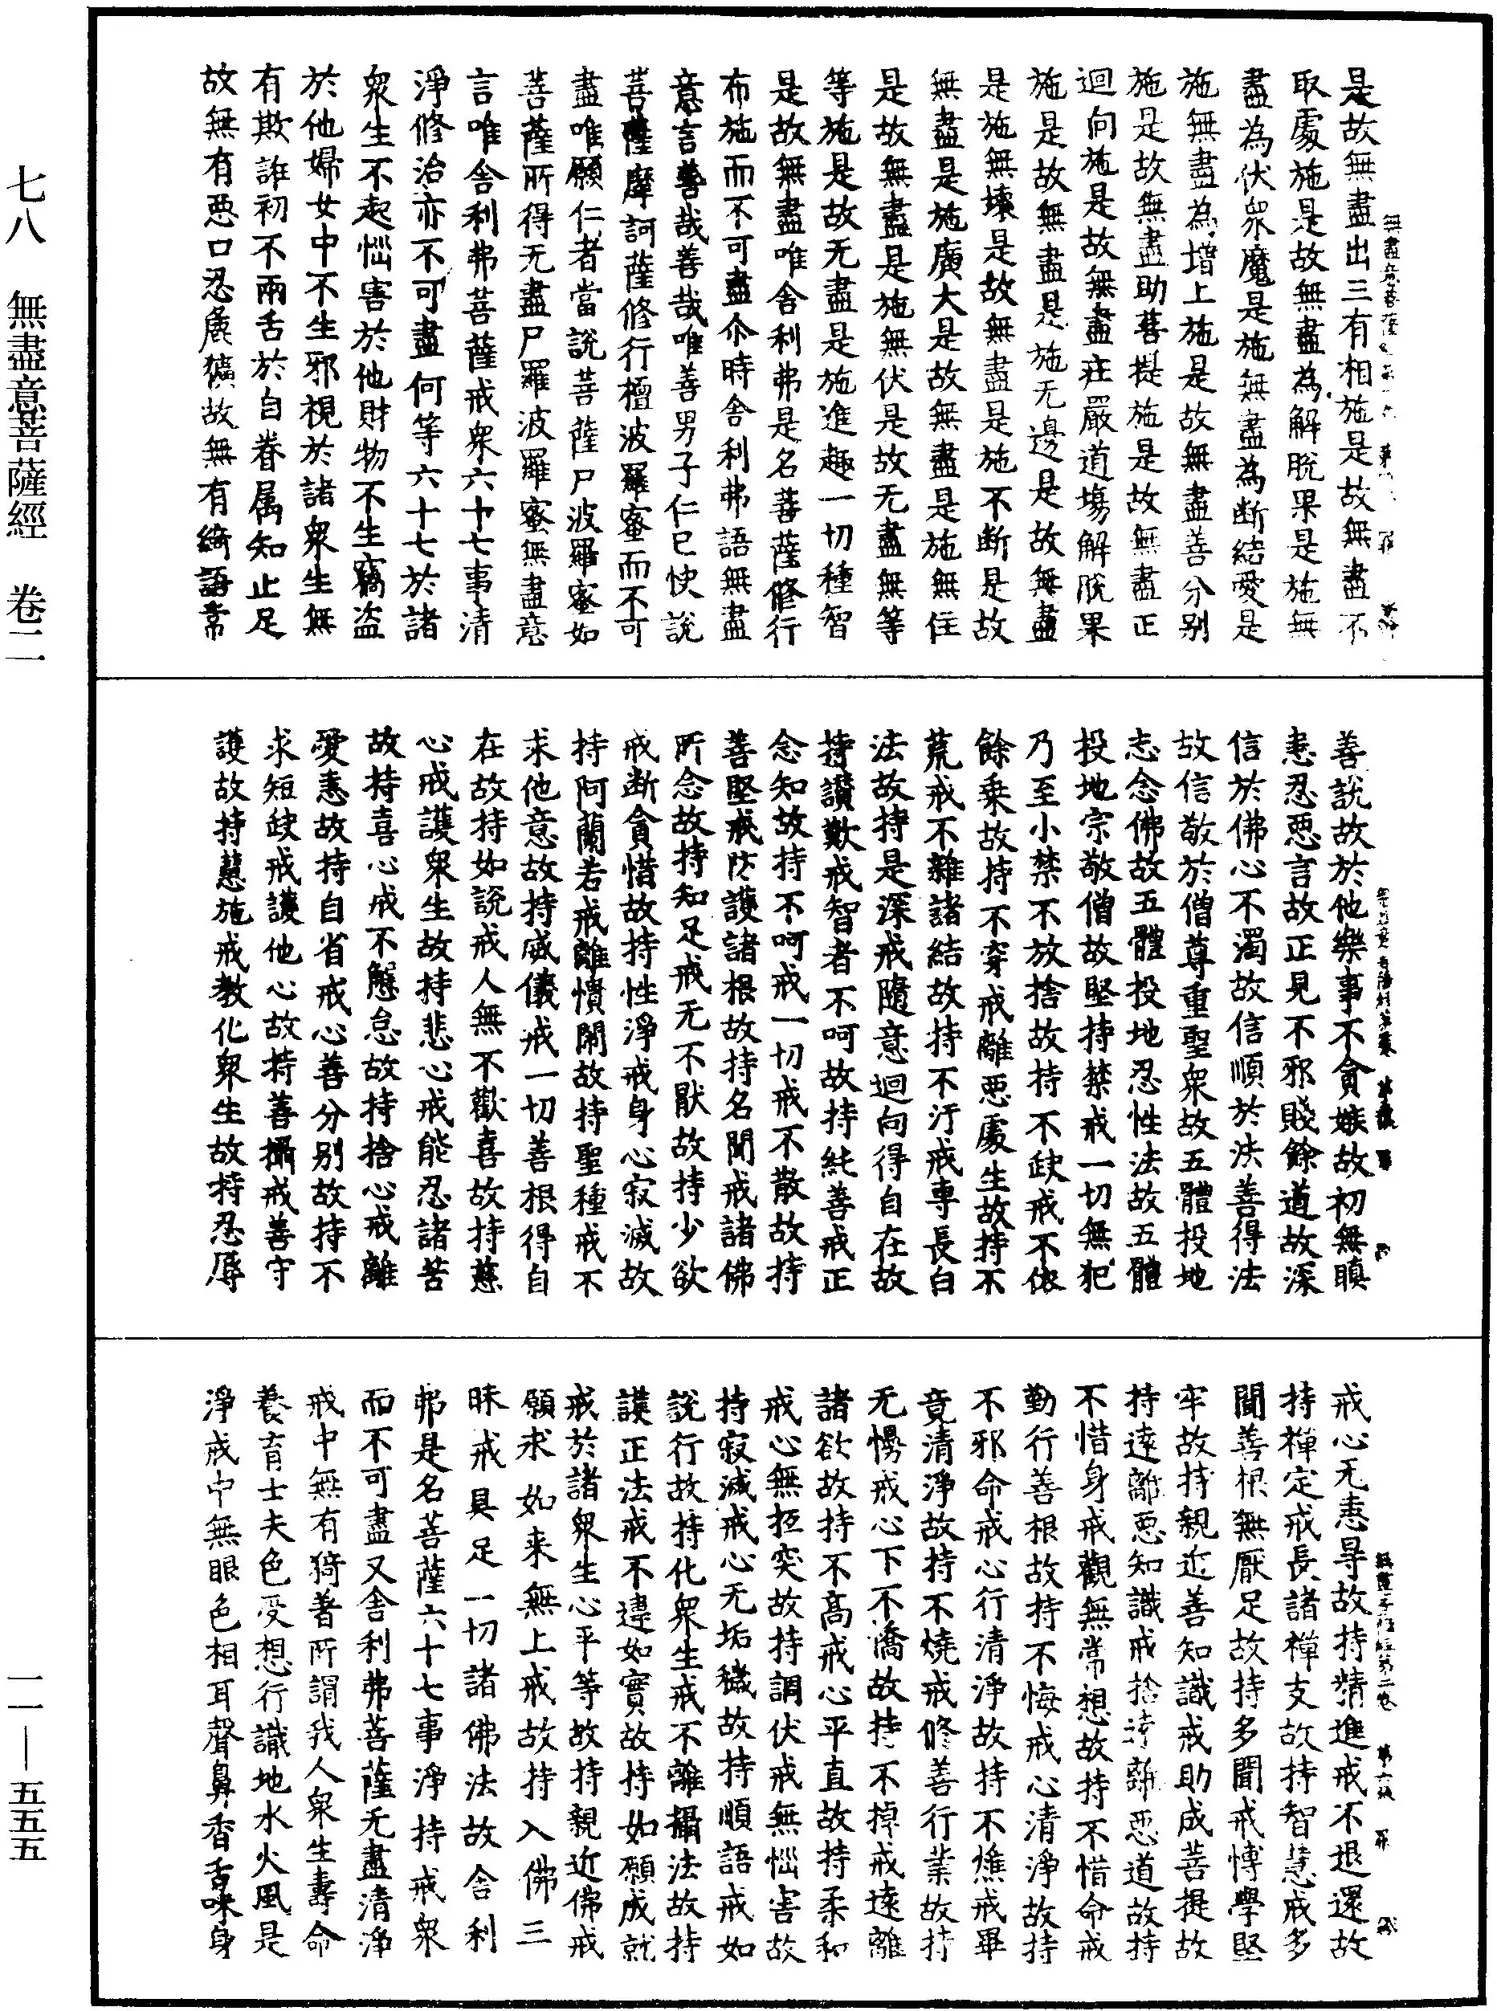 是故無盡出三有相施是故無盡不
取處施是故無盡為解脫果是施無
盡為伏眾魔是施無盡為断結愛是
施無盡為增上施是故無盡善分别
施是故無盡助菩提施是故無盡正
迴向施是故無盡莊嚴道場解脫果
施是故無盡是施无邊是故無盡
是施無壞是故無盡是施不断是故
無盡是施廣大是故無盡是施無住
是故無盡是施無伏是故无盡無等
等施是故无盡是施進趣一切種智
是故無盡唯舍利弗是名菩薩修行
布施而不可盡尒時舍利弗語無盡
意言善哉善哉唯善男子仁已快說
菩薩摩訶薩修行檀波羅蜜而不可
盡唯願仁者當說菩薩尸波羅蜜如
菩薩所得无盡尸羅波羅蜜無盡意
言唯舍利弗菩薩戒眾六十七事清
淨修治亦不可盡何等六十七於諸
眾生不起惱害於他財物不生竊盜
於他婦女中不生邪視於諸眾生無
有欺誑初不兩舌於自眷属知止足
故無有惡口忍麁獷故無有綺語常
善說故於他樂事不貪嫉故初無瞋
恚忍惡言故正見不邪賤餘道故深
信於佛心不濁故信順於法善得法
故信敬於僧尊重聖眾故五體投地
志念佛故五體投地忍性法故五體
投地宗敬僧故堅持禁戒一切無犯
乃至小禁不放捨故持不缺戒不依
餘乗故持不穿戒離惡處生故持不
荒戒不雜諸結故持不汙戒專長白
法故持是深戒隨意迴向得自在故
持讚歎戒智者不呵故持純善戒正
念知故持不呵戒一切戒不散故持
善堅戒防護諸根故持名聞戒諸佛
所念故持知足戒无不猒故持少欲
戒断貪惜故持性淨戒身心寂滅故
持阿蘭若戒離憒閙故持聖種戒不
求他意故持威儀戒一切善根得自
在故持如說戒人無不歡喜故持慈
心戒護眾生故持悲心戒能忍諸苦
故持喜心戒不懈怠故持捨心戒離
愛恚故持自省戒心善分别故持不
求短缺戒護他心故持善攝戒善守
護故持慧施戒教化眾生故持忍辱
戒心无恚㝵故持精進戒不退還故
持禪定戒長諸禪支故持智慧戒多
聞善根無厭足故持多聞戒博學堅
牢故持親近善知識戒助成菩提故
持遠離惡知識戒捨離惡道故持
不惜身戒觀無常想故持不惜命戒
勤行善根故持不悔戒心清淨故持
不邪命戒心行清淨故持不燋戒畢
竟清淨故持不燒戒修善行業故持
无慢戒心下不憍故持不掉戒遠離
諸欲故持不高戒心平直故持柔和
戒心無抂突故持調伏戒無惱害故
持寂滅戒心无垢穢故持順語戒如
說行故持化眾生戒不離攝法故持
護正法戒不違如實故持如願成就
戒於諸眾生心平等故持親近佛戒
願求如来無上戒故持入佛三
昧戒具足一切諸佛法故舍利
弗是名菩薩六十七事淨持戒眾
而不可盡又舍利弗菩薩无盡清淨
戒中無有猗著所謂我人眾生壽命
養育士夫色受想行識地水火風是
淨戒中無眼色相耳聲鼻香舌味身
七八 無盡意菩薩經 卷二
一一—五五五